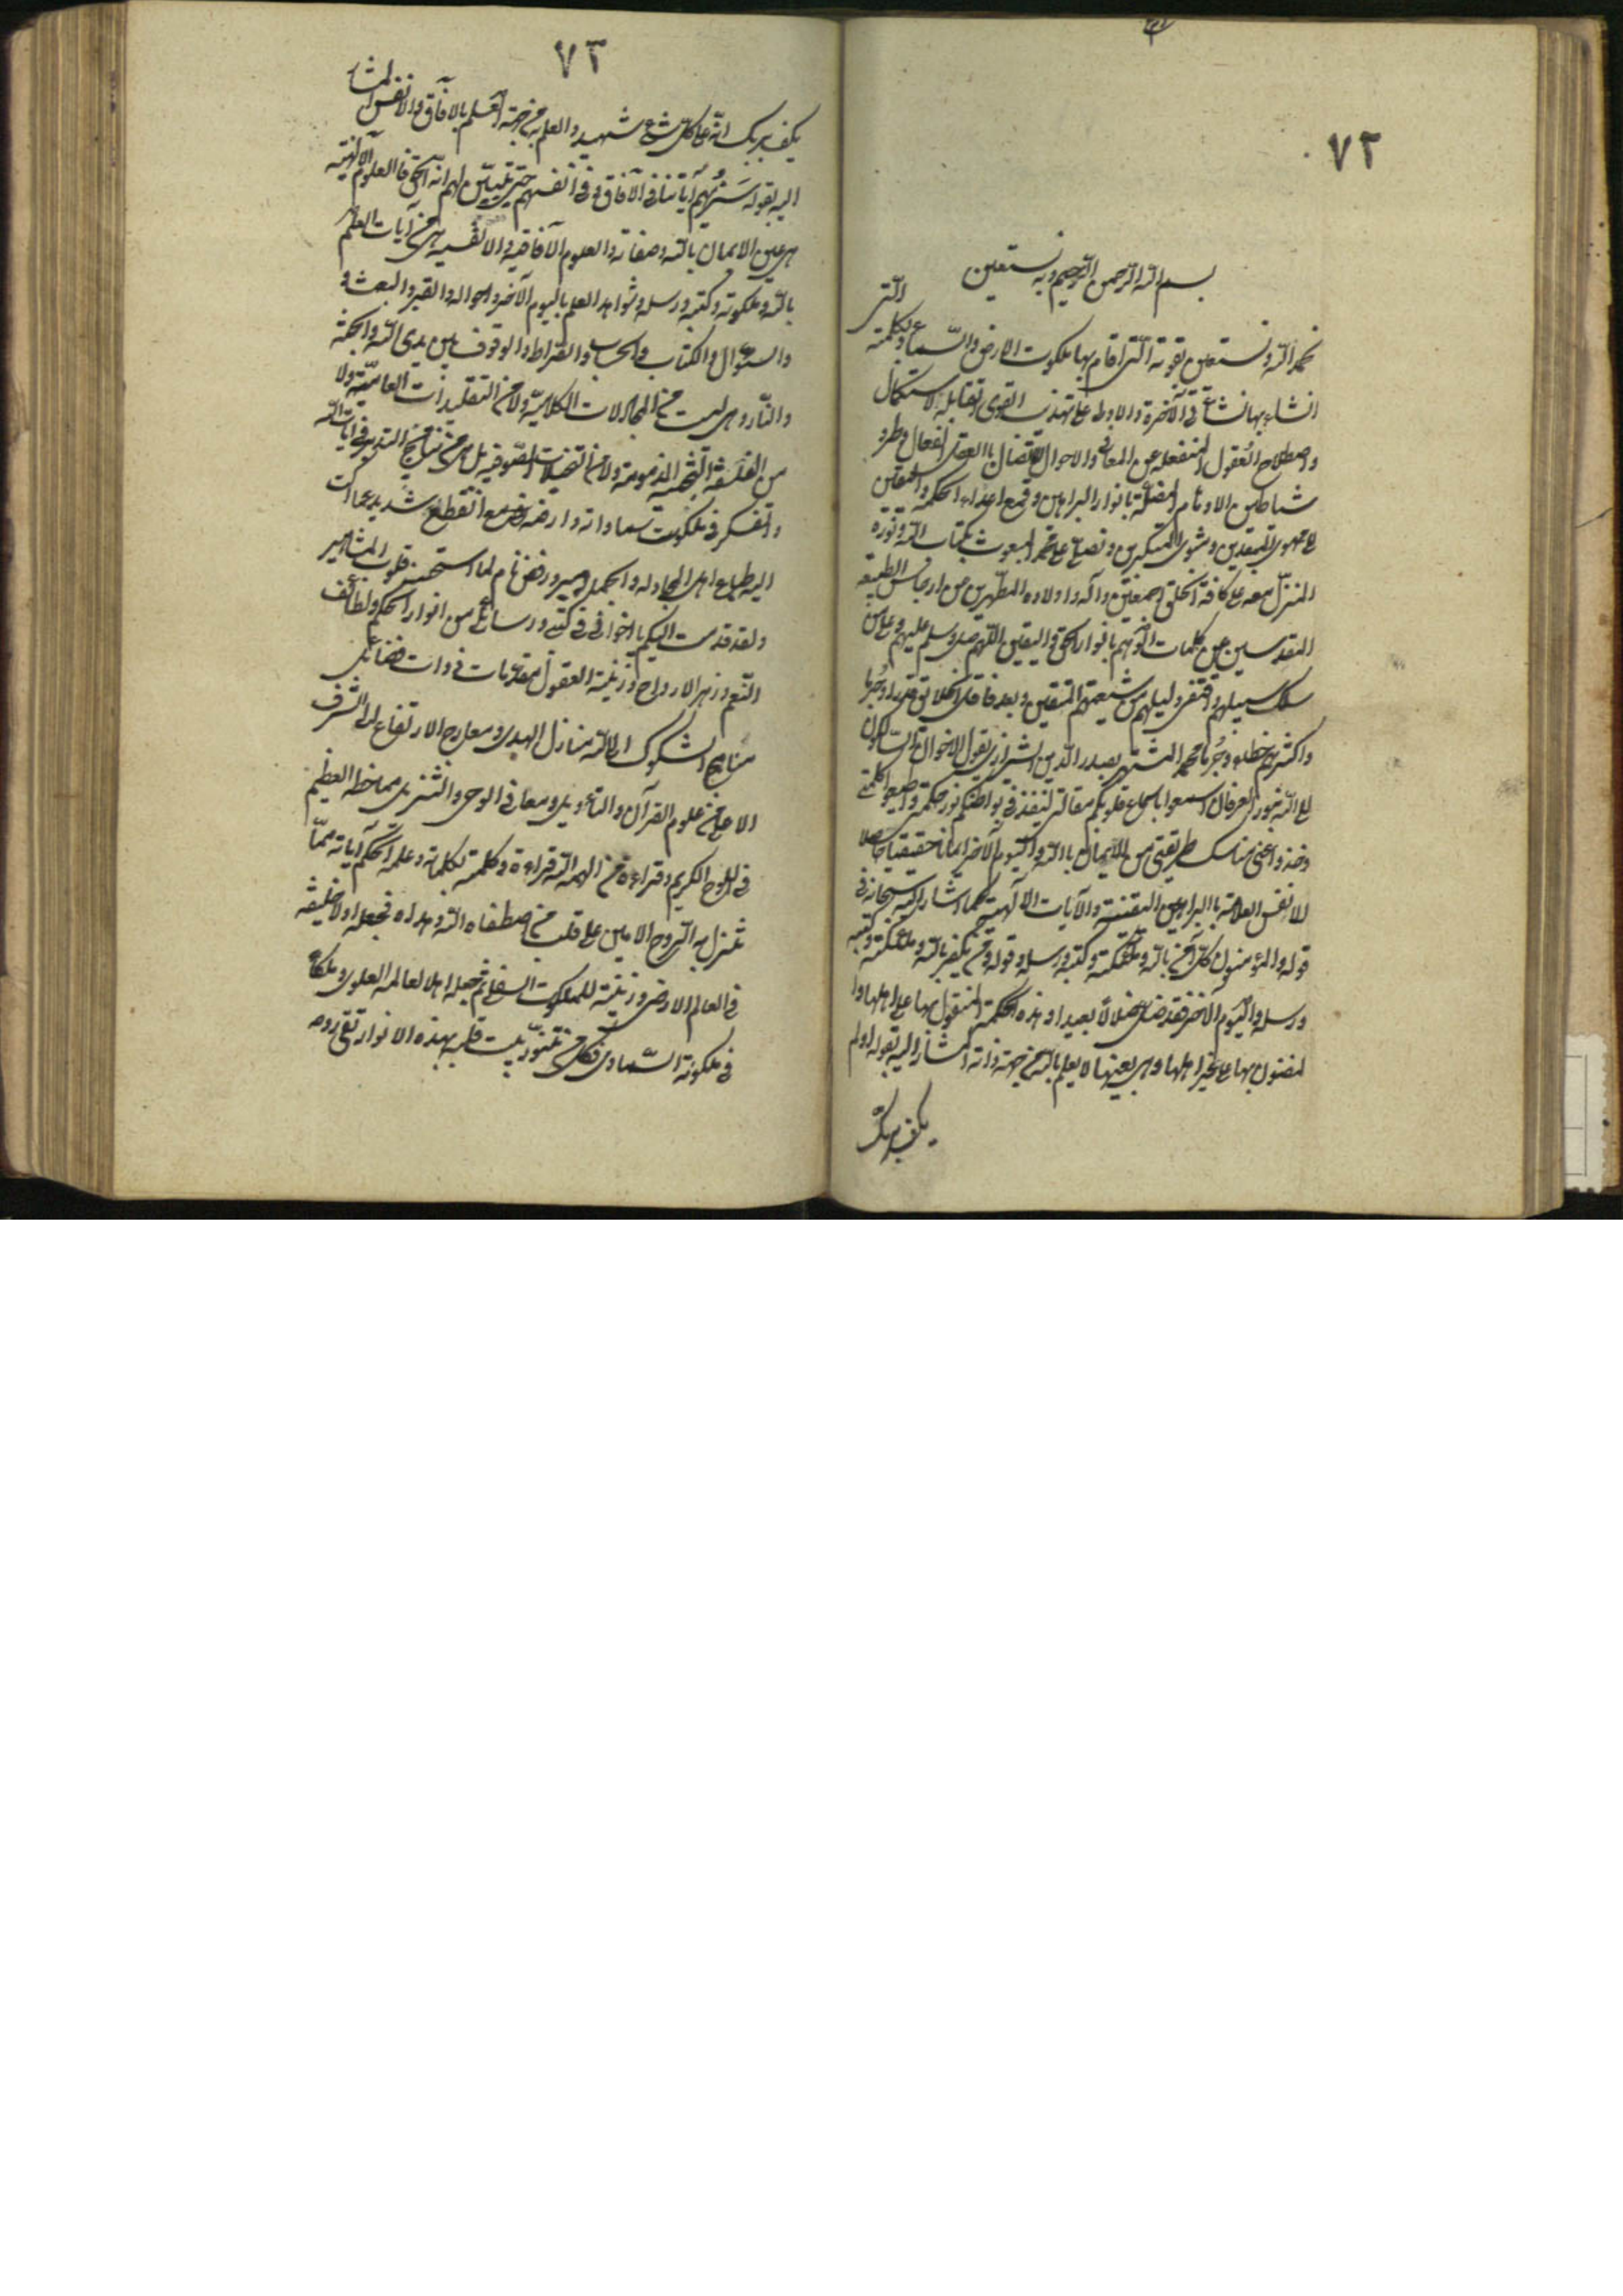 ٧٢
بسم الله الرحمن الرحيم وبه نستعين
نحمد الله ونستعين بقوته التى اقام بها ملكوت الارض والسماء وبكلمته التى
انشاء بها نشأتى الآخرة والاولى على تهذيب القوى القابلة لاستكمال
واصطلاح العقول المنفعله عن المعانى والاحوال للاتصال باالعقل الفعال وطرد
شياطين الاوهام المضلة بانوار البراهين وقمع اعداء الحكمة واليقين
الى مهوى المبعدين ومثوى المتكبرين ونصلى على محمد المبعوث بكتاب الله ونوره
المنزل معه على كافة الخلق اجمعين وآله واولاده المطهرين من ارجاس الطبيعة
المقدسين عن ظلمات الوهم بانوار الحق واليقين اللهم صل وسلم عليهم وعلى من
سلك سبيلهم واقتفى دليلهم من شيعتهم المتقين وبعد فاقل الخلائق قدرا وجرما
واكثرهم خطاء وجرما محمد المشتهر بصدر الدين الشيرازى يقول ايها الاخوان السالكون
الى الله بنور العرفان استمعوا باسماع قلوبكم مقالتى لينفذ فى بواطنكم نور حكمتى واطيعوا كلمتى
وخذوا عنى مناسك طريقتى من الايمان باالله واليوم الآخر ايمانا حقيقيا حاصلا
للانفس العلامة باالبراهين اليقينية والآيات الالهية كما اشار اليه سبحانه فى
قوله والمؤمنون كل آمن بالله وملائكته وكتبه ورسله وقوله ومن يكفر بالله وملائكته وكتبه
ورسله واليوم الآخر فقد ضل ضلالا بعيدا وهذه الحكمة الممنون بها على اهلها وا
لمضنون بها على غير اهلها وهى بعينها لا يعلم بالله من جهة ذاته المشار اليه بقوله اولم
يكف بربك
٧٣
يكف بربك انه على كل شئ شهيد والعلم به من جهة العلم بالآفاق والانفس المشار
اليه بقوله سنريهم آياتنا فى الآفاق وفى انفسهم حتى يتبين لهم انه الحق فالعلوم الالهية
هى عين الايمان بالله وصفاته والعلوم الآفاقيه والانفسيه هى من آيات العلم
بالله وملكوته وكتبه ورسله وشواهد العلم باليوم الآخر واحواله والقبر والبعث و
والسؤال والكتاب والحساب والصراط والوقوف بين يدى الله والجنة
والنار وهى ليست من المجادلات الكلامية ولا من التقليدات العامية ولا
من الفلسفة البحثيه المذمومة ولا من التخيلات الصوفيه بل هى من نتايج التدبر فى آيات الله
والتفكر فى ملكوت سماواته وارضه مع انقطاع شديد عما اكب
اليه طباع اهل المجادله والجماهير ورفض تام لما استحسنه قلوب المشاهير
ولقد قدمت اليكم يا اخوانى فى كتبى ورسائلى من انوار الحكم ولطائف
النعم وزهر الارواح وزينة العقول مقدمات ذوات فضائل
مناهج السلوك الى الله منازل الهدى ومعارج الارتفاع الى الشرف
الاعلى من علوم القرآن والتأويل ومعانى الوحى والتنزيل مما خطه العظيم
فى اللوح الكريم وقراءه من الهمه الله قراءة وكلمه بكلماته وعلمه محكم آياته مما
تنزل به الروح الامين على قلب من اصطفاه الله وهداه فجعله اولا خليفة
فى العالم الارضى وزينة للملكوت السفلى ثم جعله اهلا لعالمه العلوى وملكا
فى ملكوته السماوى فكل من تنور بيت قلبه بهذه الانوار ترتقى روحه